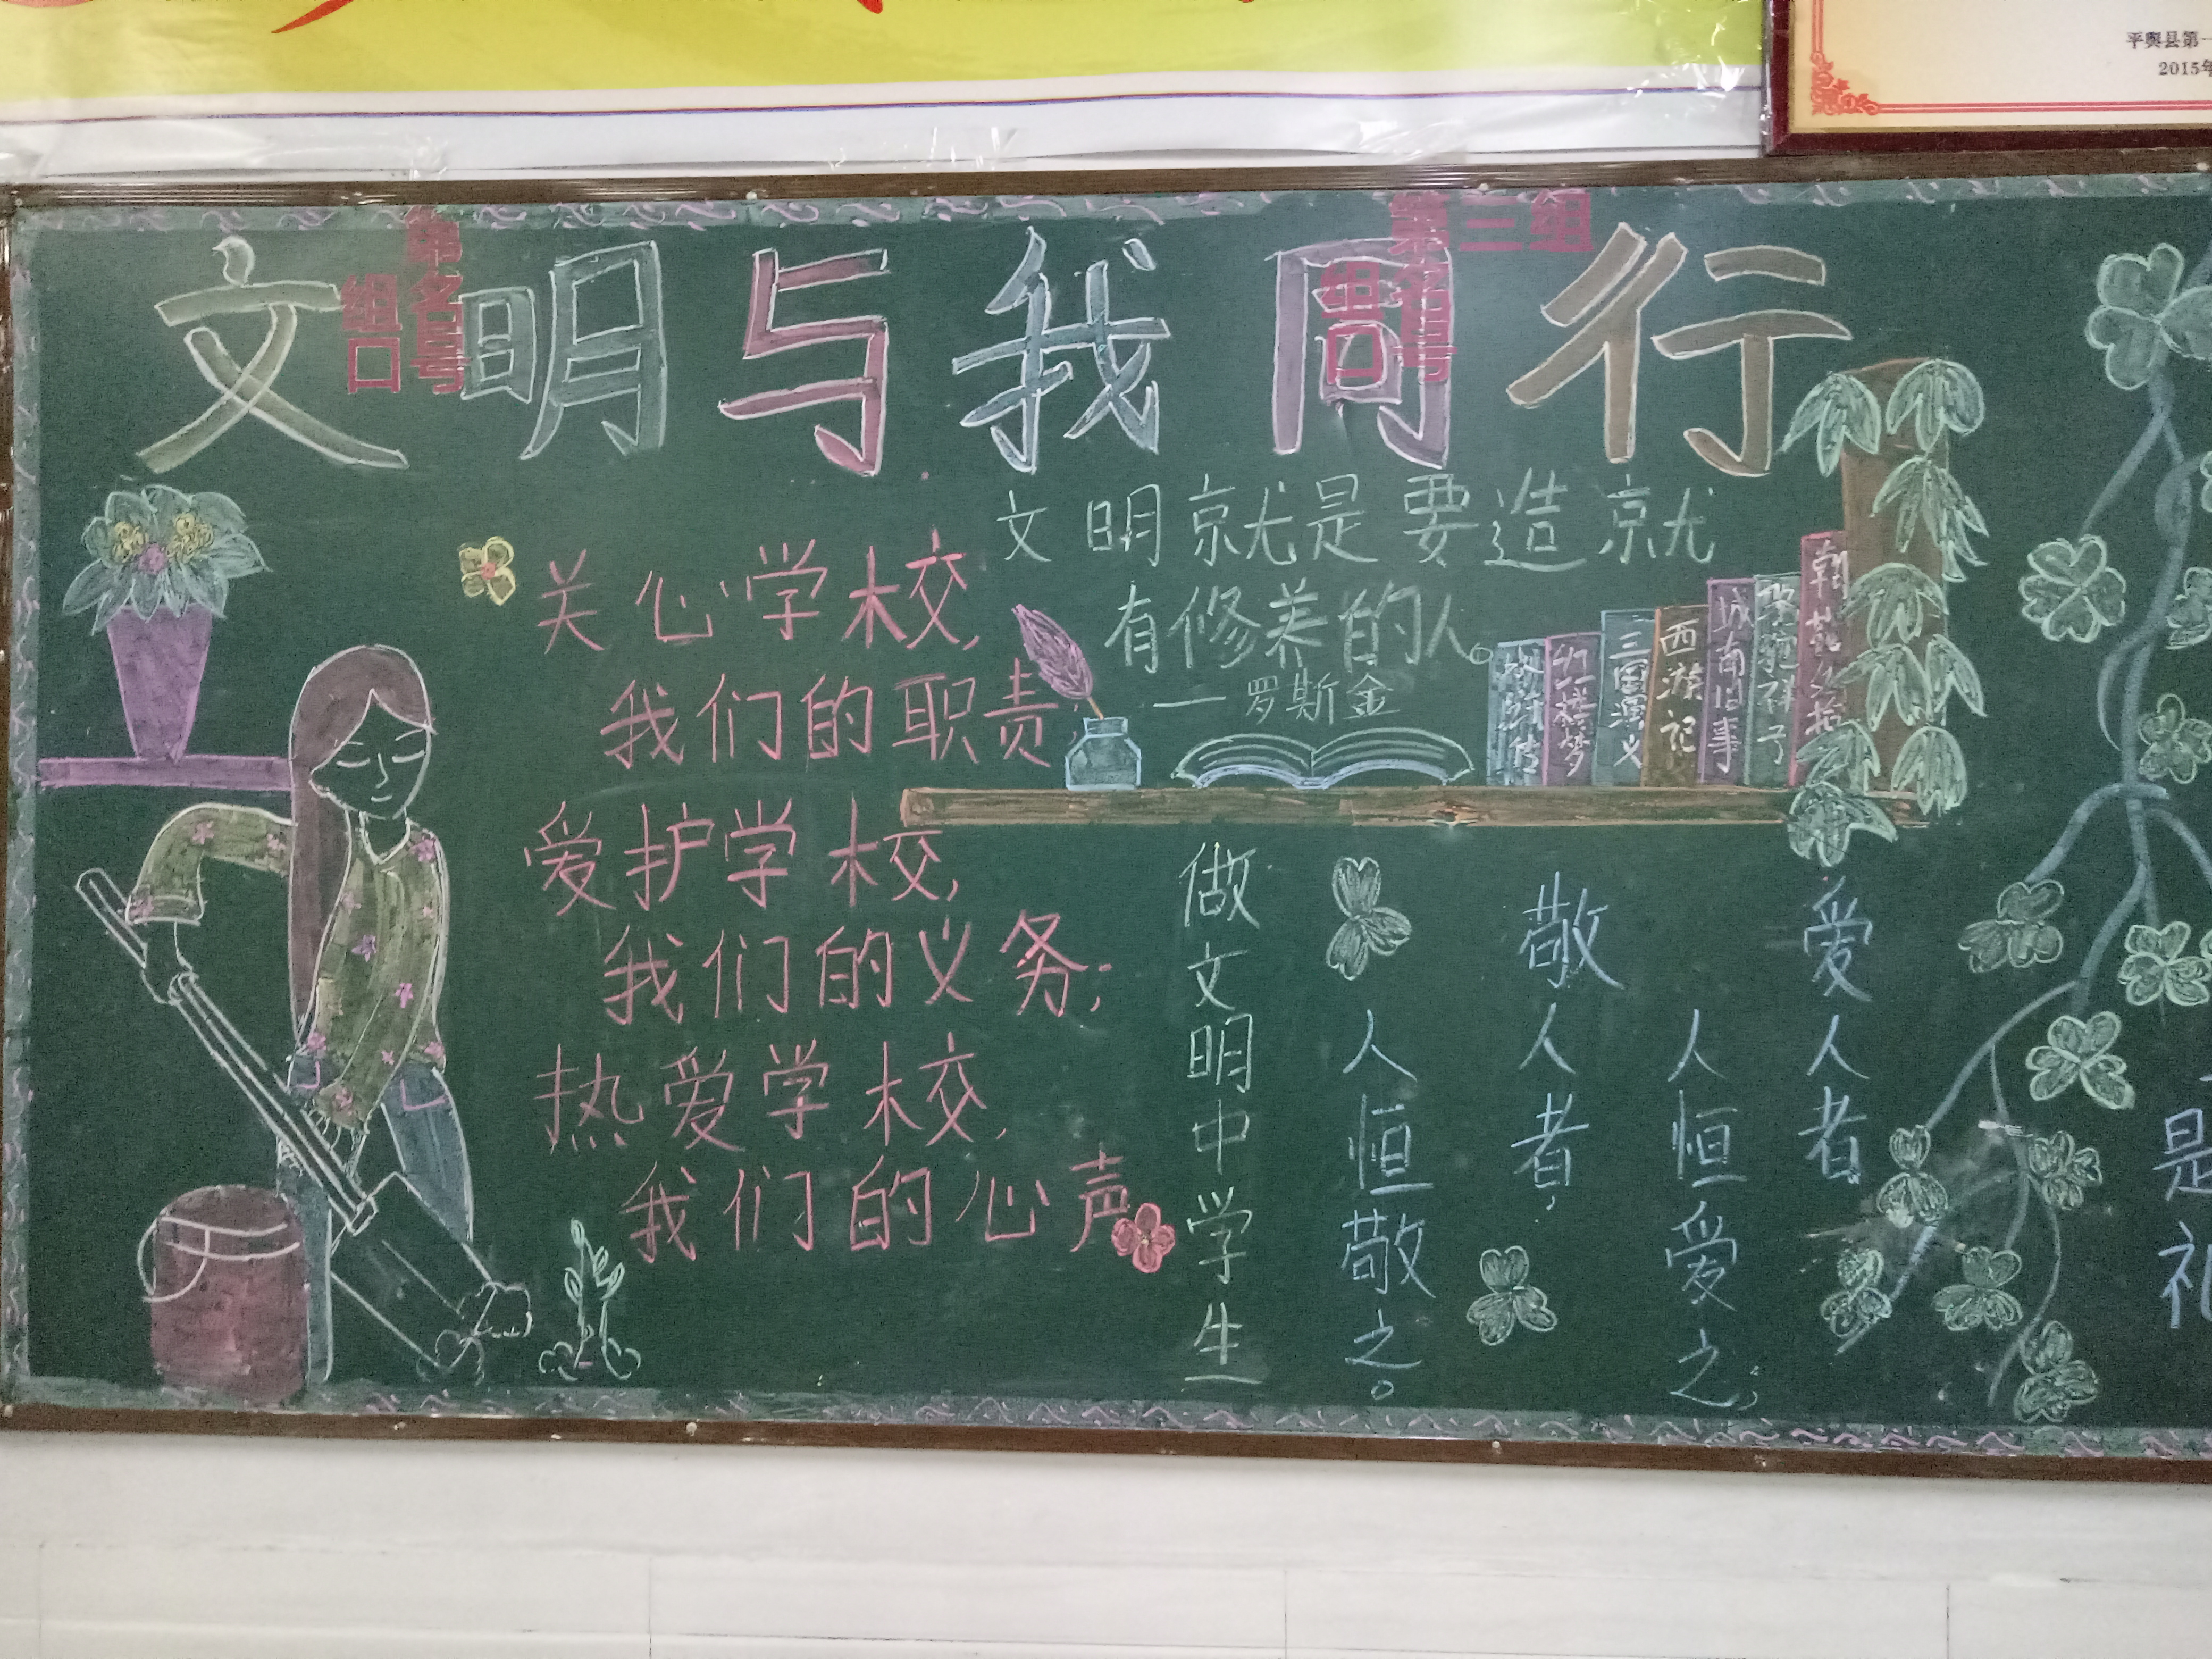 平舆县第一
2015年
第三组
组名
口号
组名
口号
文明与我同行
文明就是要造就
有修养的人。
一罗斯金
关心学校,
我们的职责;
爱护学校,
我们的义务;
热爱学校,
我们的心声
水浒传
红楼梦
三国演义
西游记
城南旧事
骆驼祥子
朝花夕拾
爱人者,
人恒爱之;
敬人者,
人恒敬之。
做文明中学生
是